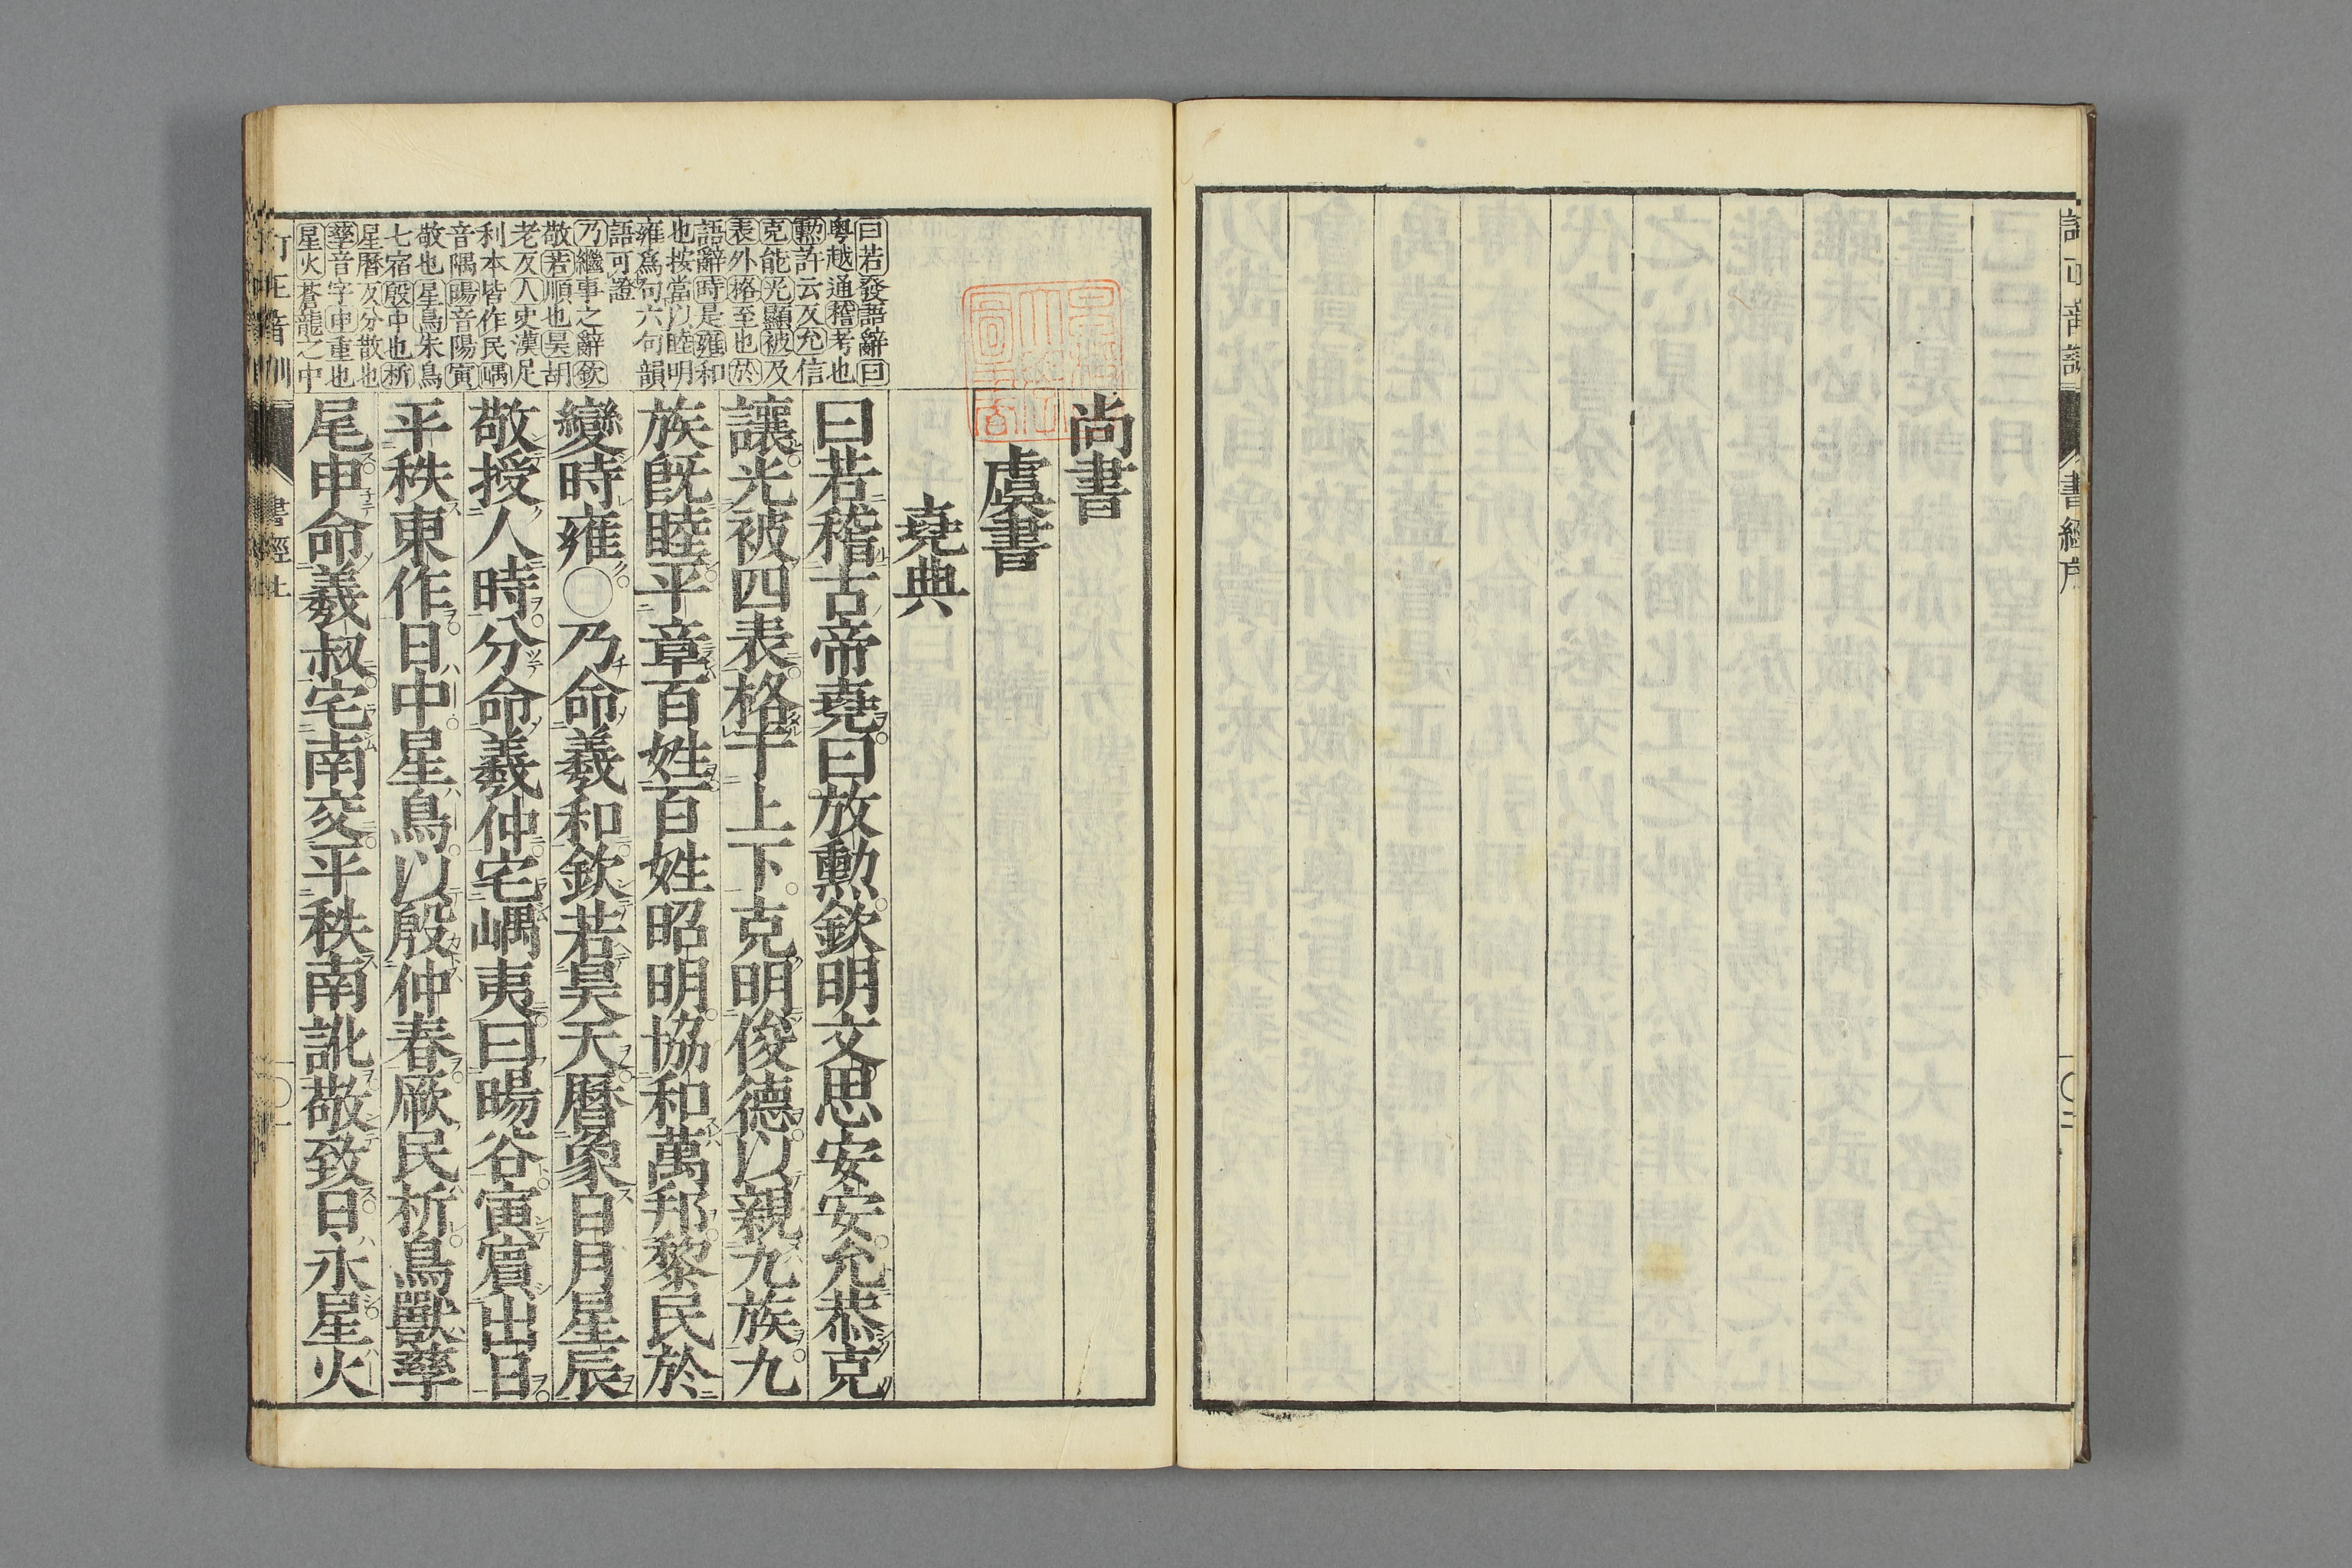 書經序
尚書
虞書
堯典
曰若稽古帝堯曰放勳欽明文思安安允恭克
讓光被四表格于上下克明俊德以親九族九
族既睦平章百姓百姓昭明協和萬邦黎民於
變時雍○乃命羲和欽若昊天曆象日月星辰
敬授人時分命羲仲宅嵎夷曰暘谷寅賓出日
平秩東作日中星鳥以殷仲春厥民析鳥獸孳
尾申命羲叔宅南交平秩南訛敬致日永星火
曰若發語辭曰
粵越通稽考也
勳許云反允信
克能光顯被及
表外格至也於
語辭時是雍和
也按當以睦明
雍爲句六句韻
語可證
乃繼事之辭欽
敬若順也昊胡
老反人史漢足
利本皆作民嵎
音隅暘音陽寅
敬也星鳥朱鳥
七宿殷中也析
星曆反分散也
孳音字申重也
星火蒼龍之中
書經上